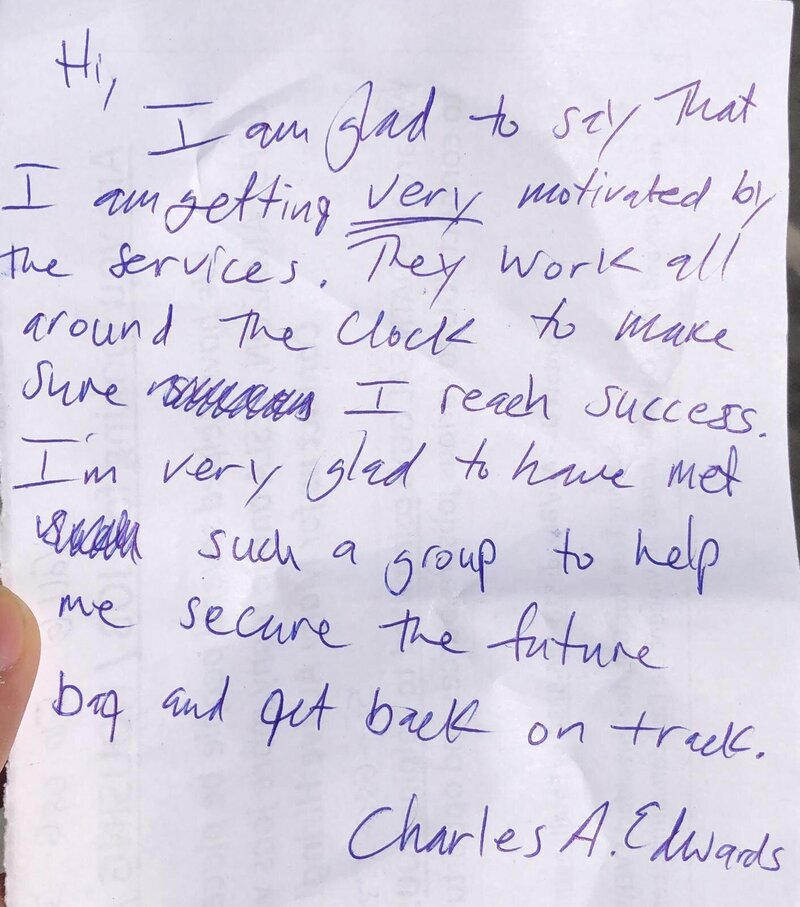 Hi,
I am glad to say that
I am getting very motivated by
the services. They work all
around the clock to make
sure I reach success.
I'm very glad to have met
such a group to help
me secure the future
bag and get back on track.
Charles A. Edwards